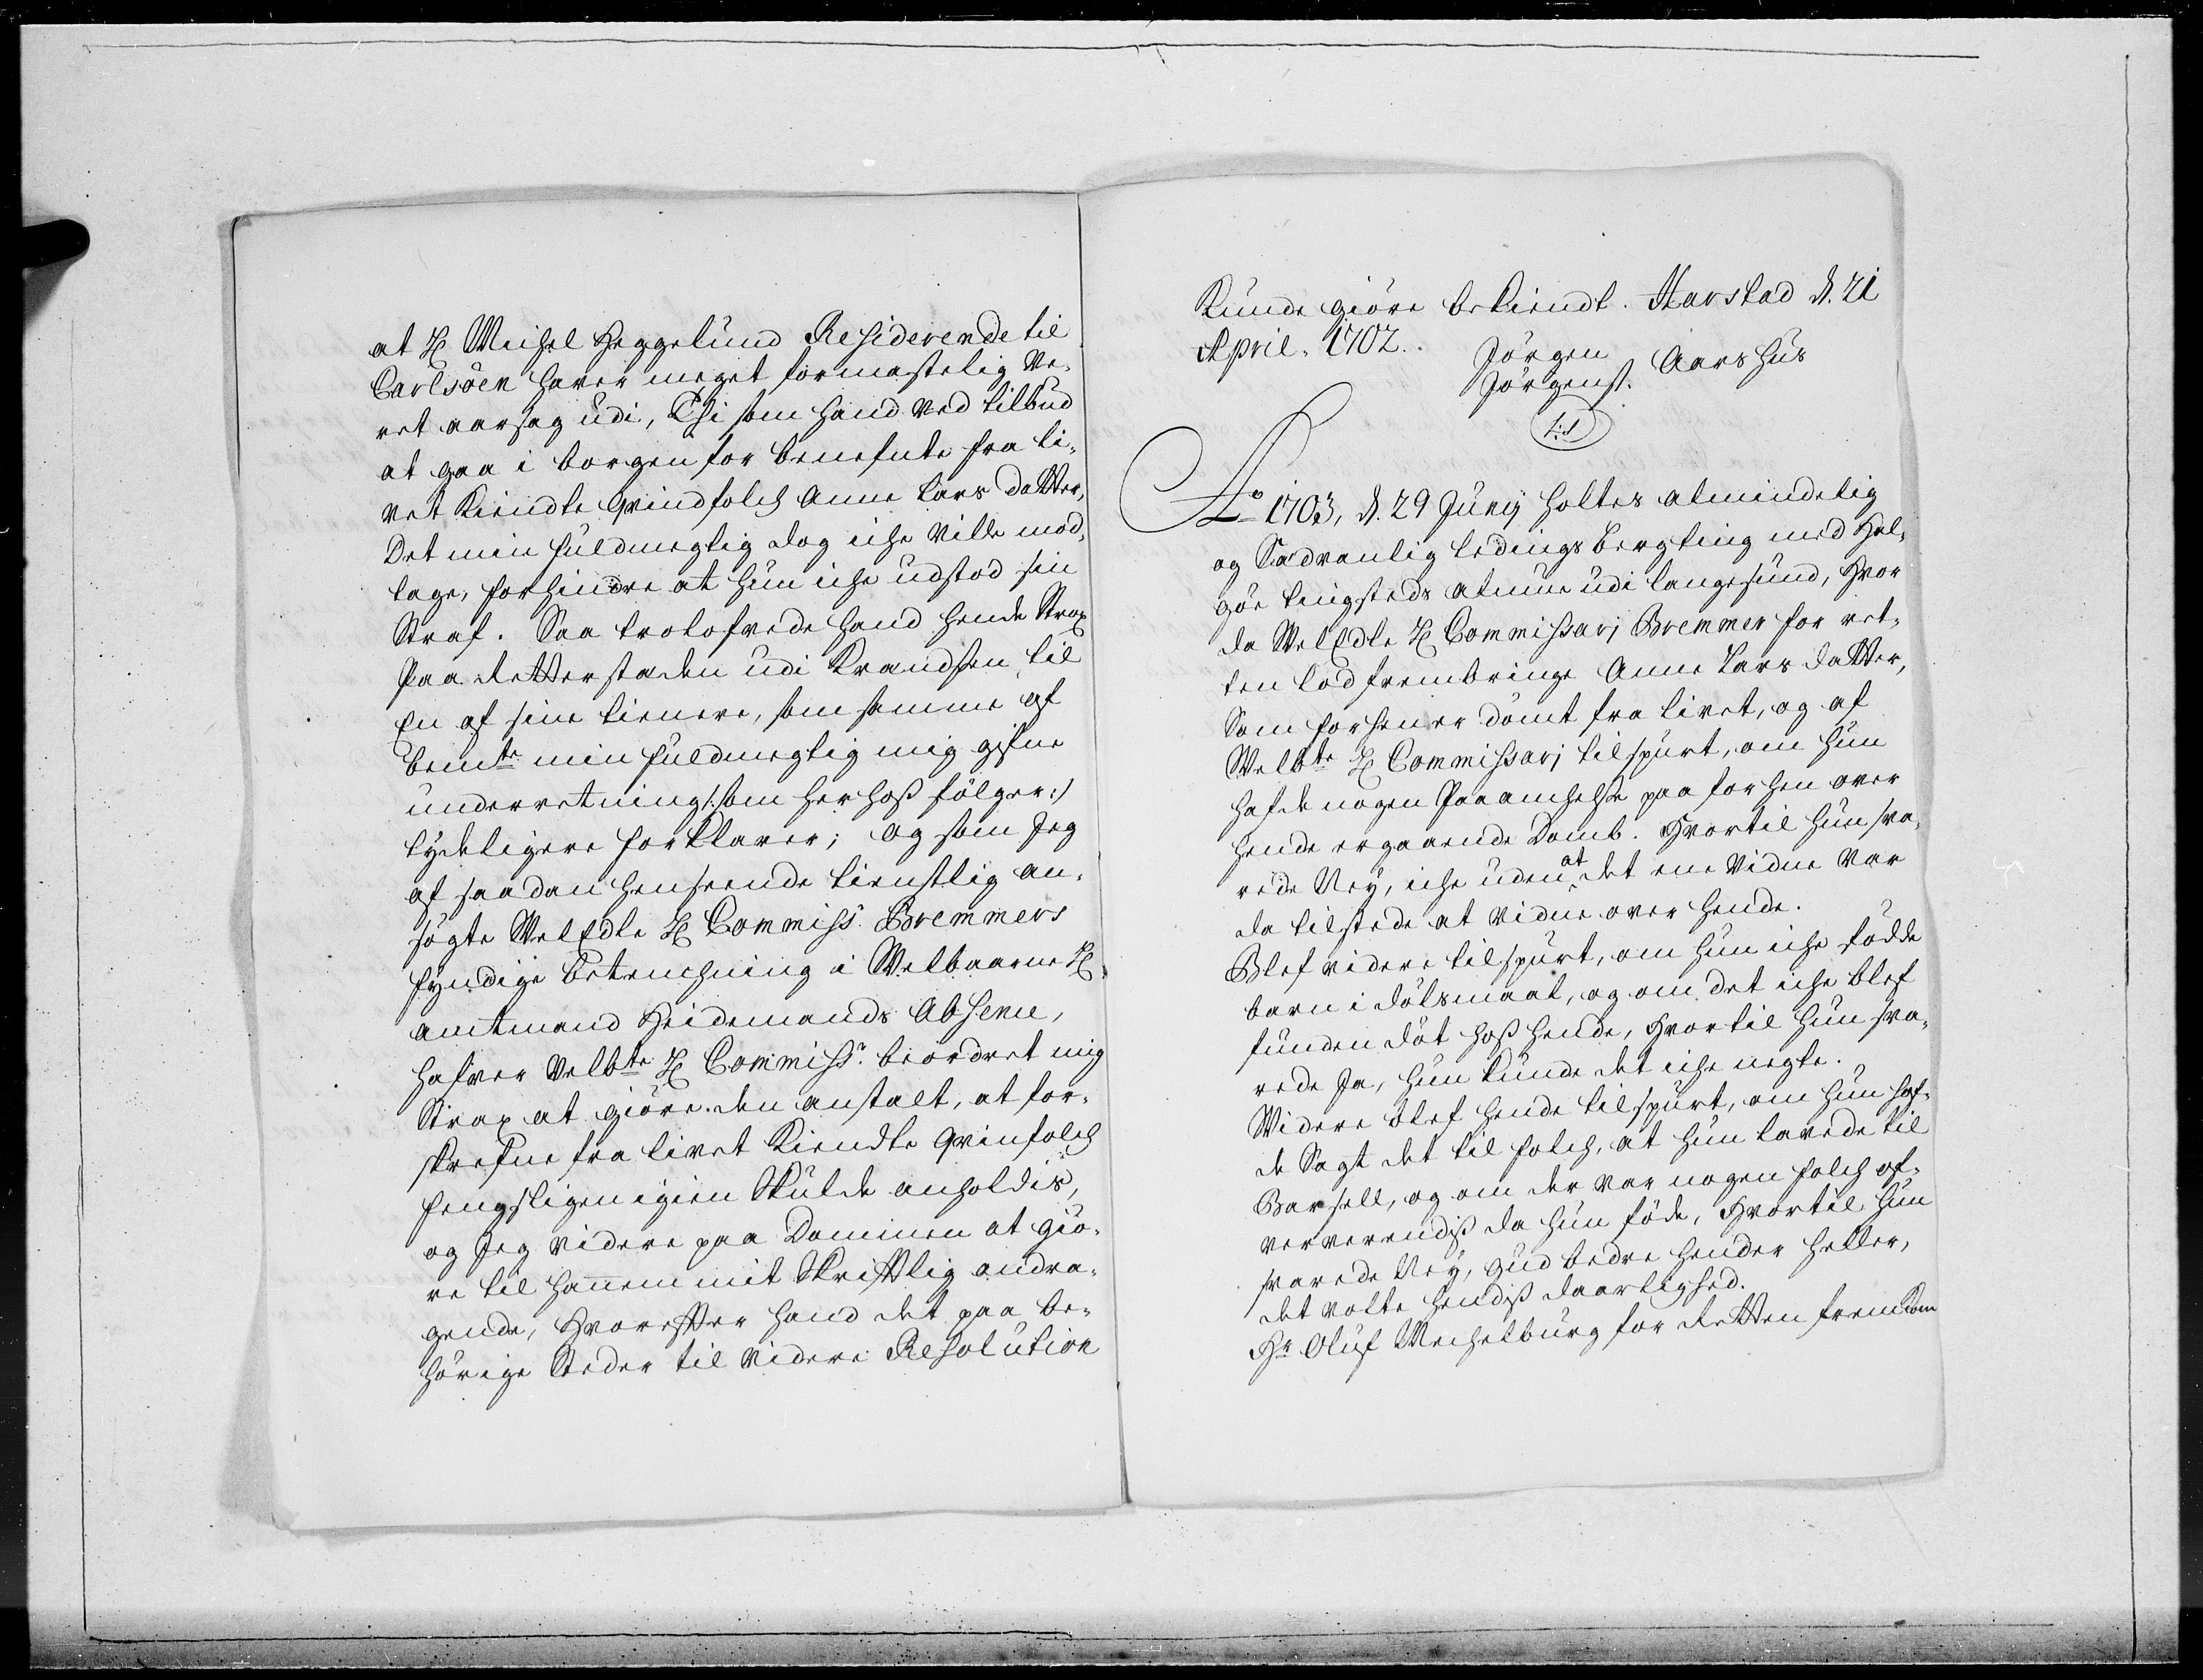 at Hr Meihel Heggelund Residerende til
Carlsöen haver meget formastelig Ve¬
ret aarsag udi, Thi som hand ved tilbud
at gaa i borgen for benefnte fra li¬
vet Kiendte Qvindfolch Anne Lars datter,
Det min fuldmegtig dog iche Ville mod¬
tage, forhindre at hun iche udstod sin
Straf. Saa trolofvede hand hende Strax
Paa retterstaden udi Krandsen, til
En af sine tienere, som samme af
bemte min fuldmegtig mig gifne
underretning /: som herhoß fölger :/
tydeligere forklarer; og som Jeg
af saadan henseende tienstlig an¬
sögte VelEdle Hr Commiss. Bremmers
fyndige betenchning i Velbaarne Hr
amtmand Heidemands Absence,
hafver Velbte Hr Commissr. beordret mig
Strax at giöre den anstalt, at for¬
skrefne fra livet Kiendte qvinfolch
fengsligen igien Skulde anholdis,
og Jeg videre paa Dommen at giö¬
re til hannem mit Skriftlig andra¬
gende, Hvorefter hand det paa be¬
hörige Steder til videre Resolution
Kunde giöre bekiendt. Harstad d. 21
April. 1702.
Jörgen
Jörgens. Aarshus
L:S
Ao 1703, d. 29 Junij holtes almindelig
og Sædvanlig ledings bergting med Hel¬
göe tingsteds almue udi Langesund, Hvor
da VelEdle Hr Commissarj Bremmer for ret¬
ten lod frembringe Anne Lars datter,
Som forhen er dömt fra livet, og af
Velbte Hr Commissarj tilspurt, om hun
hafde nogen Paaanchelse paa forhen over
hende ergaaende Domb. Hvortil hun sva¬
rede Ney, iche uden at det ene Vidne var
da tilstede at vidne over hende.
Blef videre tilspurt, om hun iche födde
barn i dölsmaal, og om det iche blef
funden döt hoß hende, Hvortil hun sva¬
rede Ja, hun kunde det iche negte.
Videre blef hende tilspurt, om hun haf¬
de Sagt det til folch, at hun lavede til
Barsell, og om der var nogen folch of¬
ververendis da hun föde, Hvortil hun
svarede Ney, gud bedre hender heller,
det volte hendiß daarlighed.
Hr Oluf Mechelburg for Retten fremkom